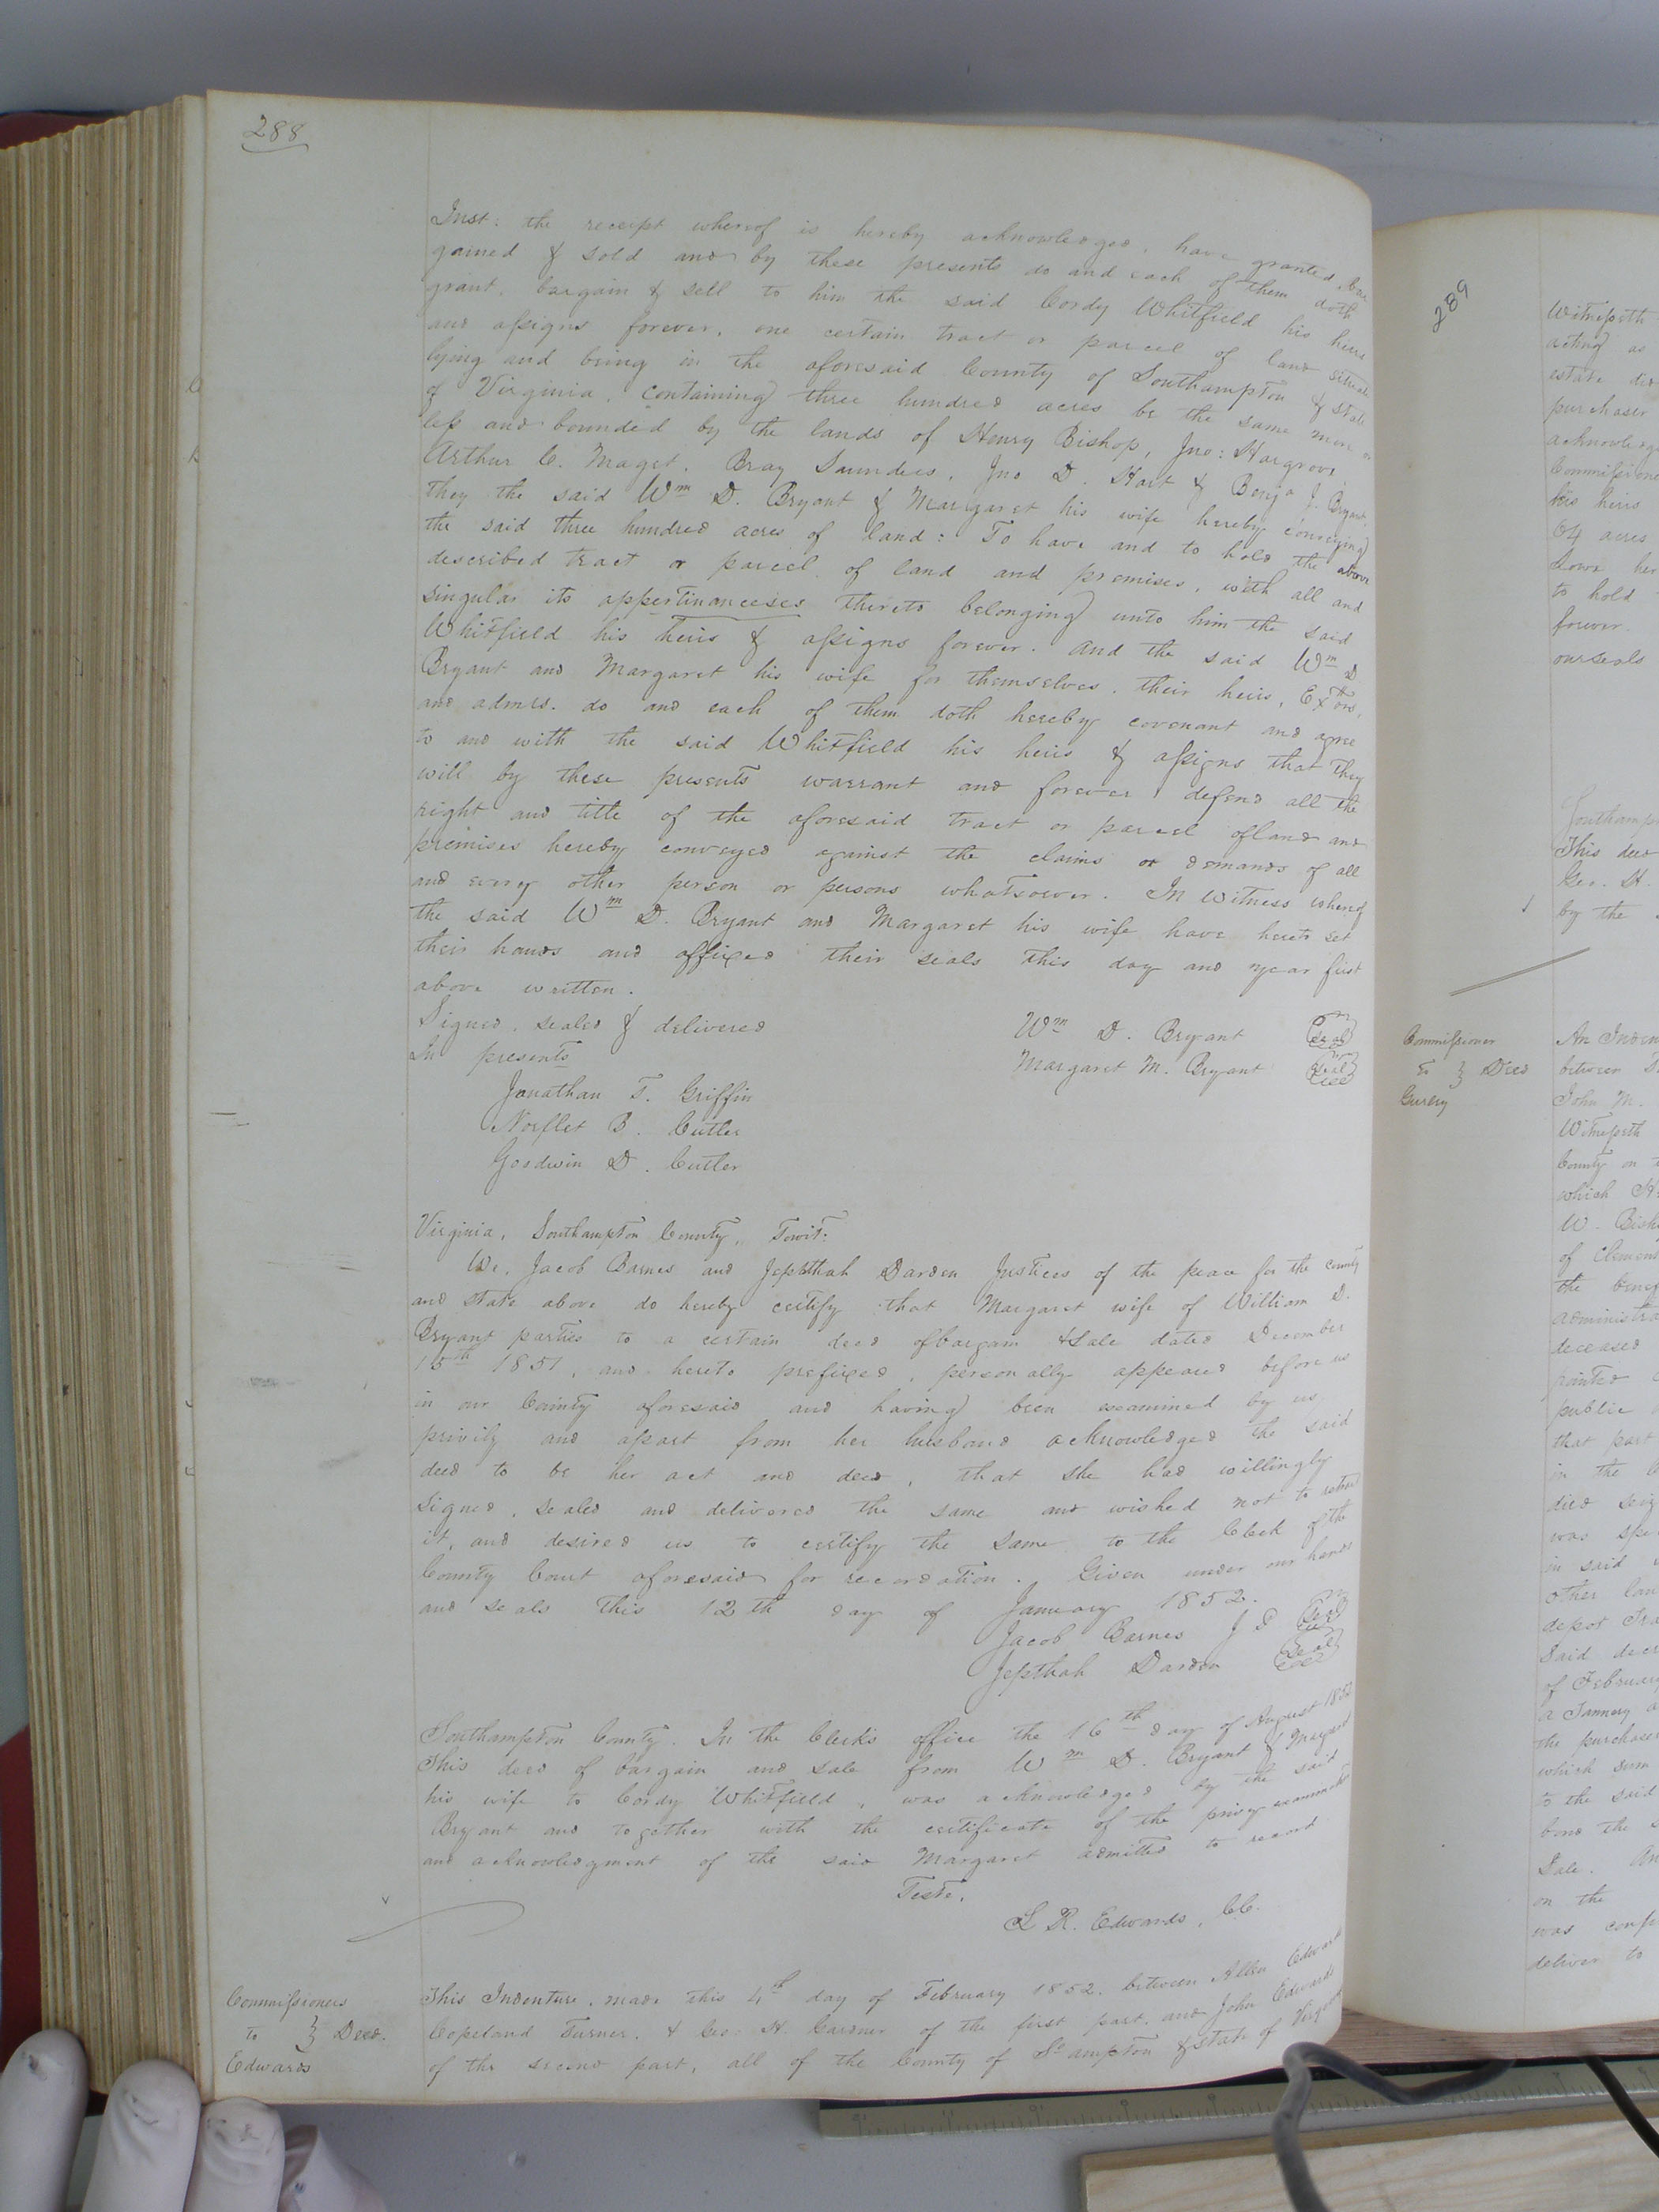 288
Inst: the receipt whereof is hereby acknowledged, have granted, bar
gained & sold and by these presents do and each of them doth
grant, bargain & sell to him the said Cordy Whitfield his heirs
and assigns forever, one certain tract or parcel of land situate
lying and being in the aforesaid County of Southampton & State
of Virginia, containing three hundred acres be the same more or
less and bounded by the lands of Henry Bishop, Jno: Hargrove,
Arthur C. Maget, Bray Saunders, Jno D. Hart & Benja J. Bryant,
they the said Wm D. Bryant & Margaret his wife hereby conveying
the said three hundred acres of land: To have and to hold the above
described tract or parcel of land and premises, with all and
singular its appertinanceses thereto belonging unto him the said
Whitfield his heirs & assigns forever. And the said Wm D.
Bryant and Margaret his wife for themselves, their heirs, Extors,
and admrs. do and each of them doth hereby covenant and agree
to and with the said Whitfield his heirs & assigns that they
will by these presents warrant and forever defend all the
right and title of the aforesaid tract or parcel of land and
premises hereby conveyed against the claims or demands of all
and every other person or persons whatsoever. In witness whereof
the said Wm D. Bryant and Margaret his wife have hereto set
their hands and affixed their seals this day and year first
above written.
Signed, sealed & delivered Wm D. Bryant Seal
In presents Margaret M. Bryant Seal
Jonathan T. Griffin
Norflet B. Cutler
Goodwin D. Cutler
Virginia, Southampton County, Towit:
We, Jacob Barnes and Jepthah Darden Justices of the peace for the county
and state above do hereby certify that Margaret wife of William D.
Bryant parties to a certain deed of bargain & Sale dated December
15th 1851, and hereto prefixed, personally appeared before us
in our County aforesaid and having been examined by us
privily and apart from her husband acknowledged the said
deed to be her act and deed, that she had willingly
signed, sealed and delivered the same and wished not to retract
it, and desired us to certify the same to the Clerk of the
County Court aforesaid for recordation. Given under our hands
and seals this 12th day of January 1852.
Jacob Barnes J P Seal
Jepthah Darden Seal
Southampton County. In the Clerk's office the 16th day of August 1852
This deed of bargain and sale from Wm D. Bryant & Margaret
his wife to Cordy Whitfield, was acknowledged by the said
Bryant and together with the certificate of the privy examination
and acknowledgment of the said Margaret admitted to record
Teste,
L R. Edwards, CC.
Commissioners
to } Deed.
Edwards
This Indenture, made this 4th day of February 1852, between Allen Edwards
Copeland Turner, & Geo: H. Gardner of the first part, and John Edwards
of the second part, all of the County of So ampton & State of Virginia
289
Witnesseth
acting as
estate
purchaser
acknowledge
Commissione
his heirs
64 acres
down her
to hold
forever.
our seals
Southamp
This deed
Geo. H.
by the
Commissioner
to } Deed
Gurley
An Inden
between
John M.
Witnesseth
County on
which
W. Bish
of Clemen
the benef
administra
deceased
pointed
public
that part
in the
died seiz
was spe
in said
other lan
depot
Said decr
of February
a Tannery
the purchase
which sum
to the said
bond the
Sale. An
on the
was conf
deliver to